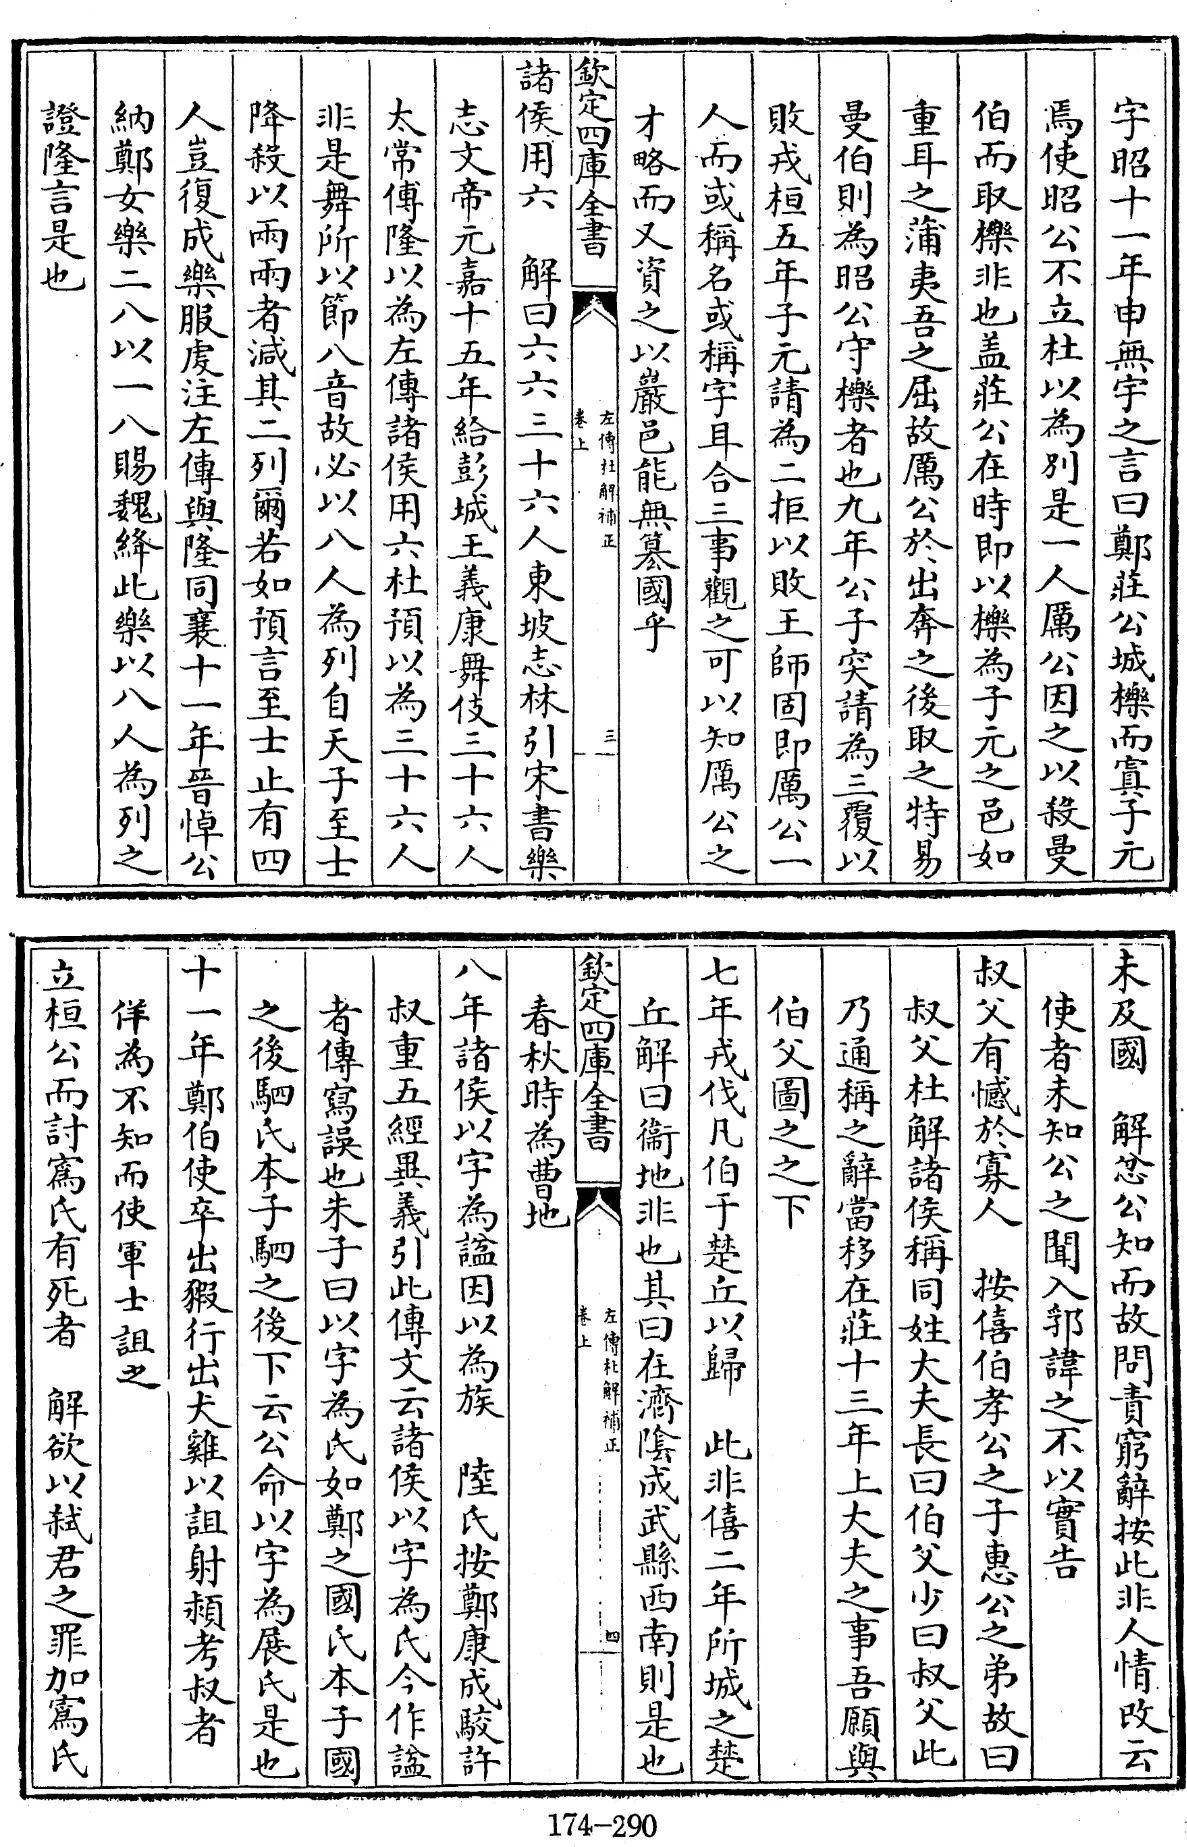 字昭十一年申無宇之言曰鄭莊公城櫟而寘子元
焉使昭公不立杜以為別是一人厲公因之以殺曼
伯而取櫟非也盖莊公在時即以櫟為子元之邑如
重耳之蒲夷吾之屈故厲公於出奔之後取之特易
曼伯則為昭公守櫟者也九年公子突請為三覆以
敗戎桓五年子元請為二拒以敗王師固即厲公一
人而或稱名或稱字耳合三事觀之可以知厲公之
才略而又資之以巖邑能無篡國乎
欽定四庫全書
左傳杜解補正
卷上
三
諸侯用六 解曰六六三十六人東坡志林引宋書樂
志文帝元嘉十五年給彭城王義康舞伎三十六人
太常傅隆以為左傳諸侯用六杜預以為三十六人
非是舞所以節八音故必以八人為列自天子至士
降殺以兩兩者減其二列爾若如預言至士止有四
人豈復成樂服虔注左傳與隆同襄十一年晉悼公
納鄭女樂二八以一八賜魏絳此樂以八人為列之
證隆言是也
未及國 解忿公知而故問責窮辭按此非人情改云
使者未知公之聞入郛諱之不以實告
叔父有憾於寡人 按僖伯孝公之子惠公之弟故曰
叔父杜解諸侯稱同姓大夫長曰伯父少曰叔父此
乃通稱之辭當移在莊十三年上大夫之事吾願與
伯父圖之之下
七年戎伐凡伯于楚丘以歸 此非僖二年所城之楚
丘解曰衞地非也其曰在濟陰成武縣西南則是也
欽定四庫全書
左傳杜解補正
卷上
四
春秋時為曹地
八年諸侯以字為謚因以為族 陸氏按鄭康成駮許
叔重五經異義引此傳文云諸侯以字為氏今作謚
者傳寫誤也朱子曰以字為氏如鄭之國氏本子國
之後駟氏本子駟之後下云公命以字為展氏是也
十一年鄭伯使卒出豭行出犬雞以詛射潁考叔者
佯為不知而使軍士詛之
立桓公而討寪氏有死者 解欲以弒君之罪加寪氏
174-290